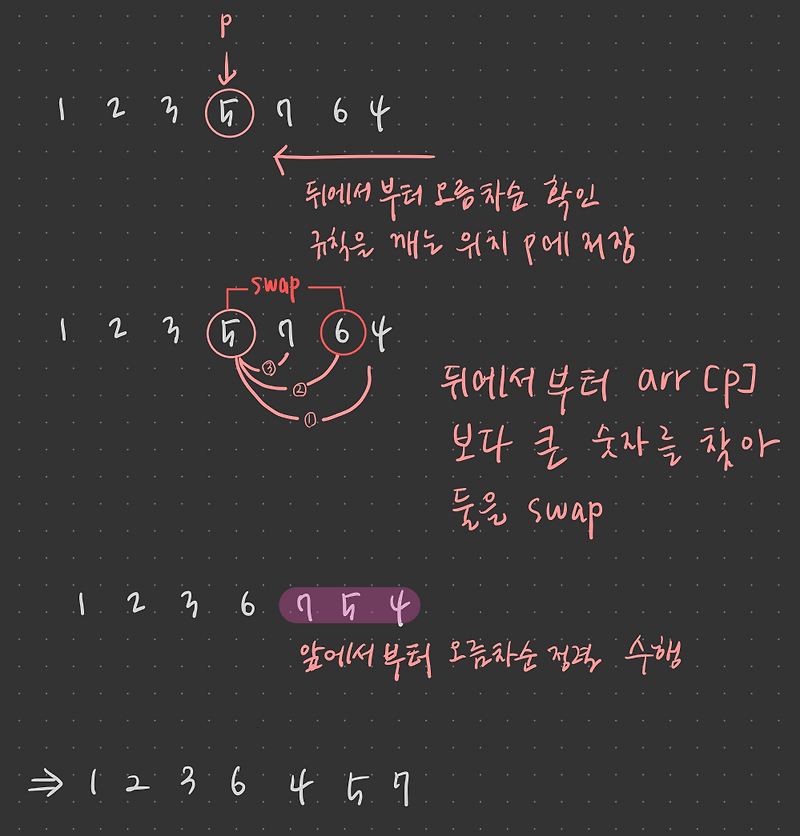 P
1 2 3 5 7 6 4
뒤에서부터 오름차순 확인
규칙을 깨는 위치 p에 저장
swap
1 2 3 5 7 6 4
③
②
①
뒤에서부터 arr [p]
보다 큰 숫자를 찾아
둘은 swap
1 2 3 6 7 5 4
앞에서부터 오름차순 정력 수행
⇒ 1 2 3 6 4 5 7